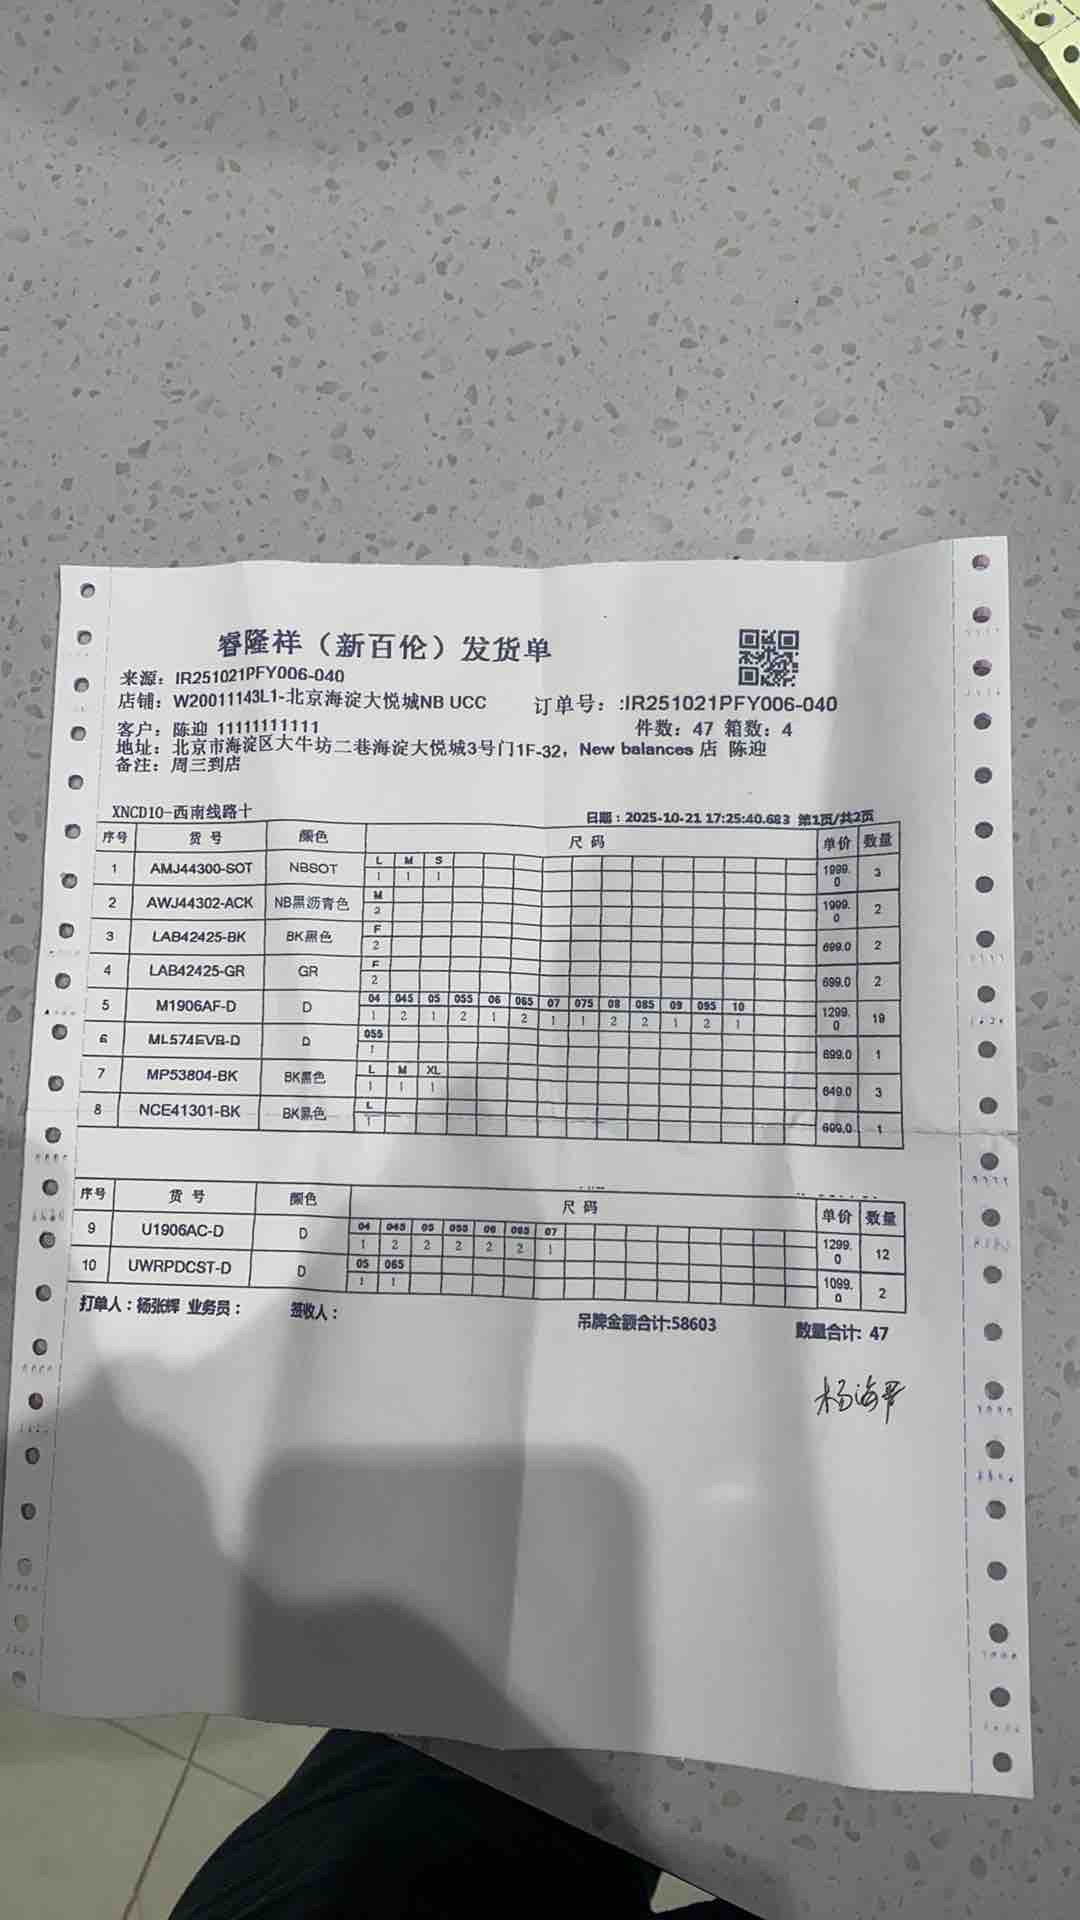 睿隆祥（新百伦）发货单
来源：IR251021PFY006-040
店铺：W20011143L1-北京海淀大悦城NB UCC 订单号：:IR251021PFY006-040
客户：陈迎 11111111111 件数：47 箱数：4
地址：北京市海淀区大牛坊二巷海淀大悦城3号门1F-32，New balances 店 陈迎
备注：周三到店
XNCD10-西南线路十 日期：2025-10-21 17:25:40.683 第1页/共2页
序号 货 号 颜色 尺 码 单价 数量
L M S
1 AMJ44300-SOT NBSOT 1 1 1 1999.0 3
M
2 AWJ44302-ACK NB黑沥青色 2 1999.0 2
F
3 LAB42425-BK BK黑色 2 699.0 2
F
4 LAB42425-GR GR 2 699.0 2
04 045 05 055 06 065 07 075 08 085 09 095 10
5 M1906AF-D D 1 2 1 2 1 2 1 1 2 2 1 2 1 1299.0 19
055
6 ML574EVB-D D 1 699.0 1
L M XL
7 MP53804-BK BK黑色 1 1 1 649.0 3
L
8 NCE41301-BK BK黑色 1 699.0 1
序号 货 号 颜色 尺 码 单价 数量
04 045 05 055 06 065 07
9 U1906AC-D D 1 2 2 2 2 2 1 1299.0 12
05 065
10 UWRPDCST-D D 1 1 1099.0 2
打单人：杨张辉 业务员： 签收人： 吊牌金额合计:58603 数量合计: 47